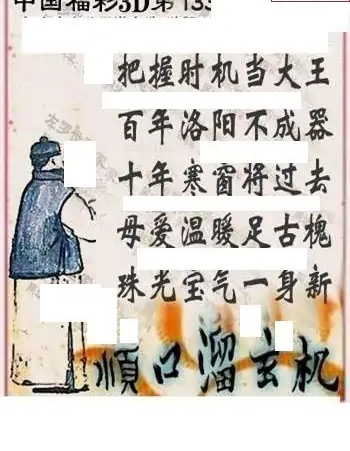 中国福彩3D第133
把握时机当大王
百年洛阳不成器
十年寒窗将过去
母爱温暖足古槐
珠光宝气一身新
順口溜玄机